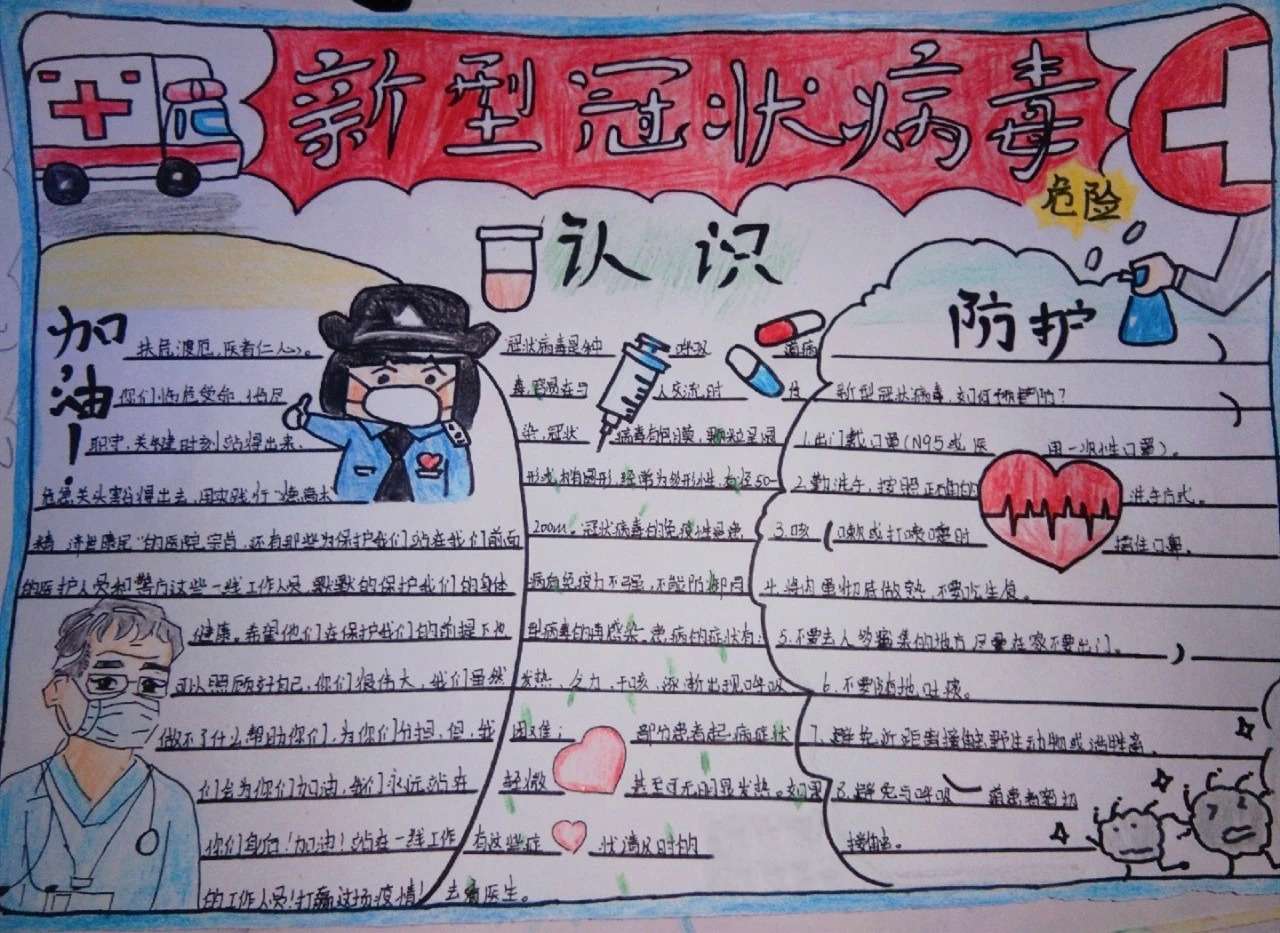 新型冠状病毒
危险
认识
加油!
扶危渡厄,医者仁心。
你们临危受命,恪尽
职守,关键时刻站得出来,
危急关头豁得出去,用实践行
济世康民”的医院宗旨,还有那些为保护我们站在我们前面
的医护人员和警方这些一线工作人员,默默的保护我们的身体
健康。希望他们在保护我们的前提下也
可以照顾好自己,你们很伟大,我们虽然
做不了什么帮助你们,为你们分担,但,我
们会为你们加油,我们永远站在
你们身旁!加油!站在一线工作
的工作人员!打赢这场疫情!
冠状病毒是种呼吸道病
毒,容易在与人交流时传
染,冠状病毒有包膜,颗粒呈圆
形或椭圆形,经常为多形性,直径50-
200m。冠状病毒的免疫性是患
病后免疫力不强,不能防御同
型病毒的再感染。患病的症状有:
发热,乏力,干咳,逐渐出现呼吸
困难;部分患者起病症状
轻微甚至可无明显发热。如果
有这些症状请及时的
去看医生。
防护
新型冠状病毒,如何预防?
1.出门戴口罩(N95或医用一次性口罩)。
2.勤洗手,按照正确的洗手方式。
3.咳嗽或打喷嚏时捂住口鼻。
4.将肉蛋彻底做熟,不要吃生食。
5.不要去人多密集的地方尽量在家不要出门。
6.不要随地吐痰。
7.避免近距离接触野生动物或
8.避免与呼吸道病患者密切
接触。